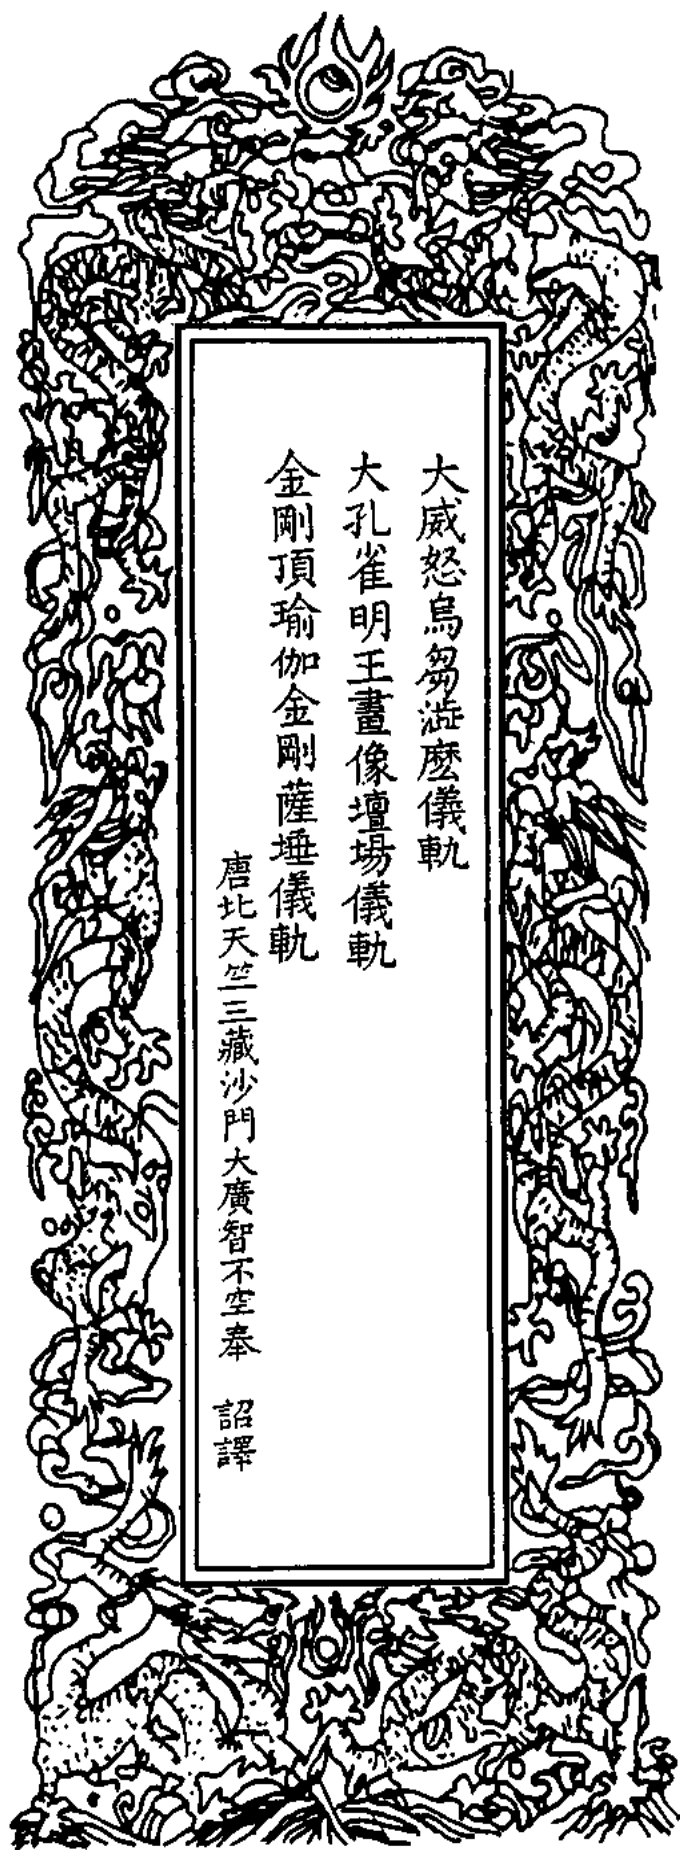 大威怒烏芻澁麽儀軌
大孔雀明王畫像壇場儀軌
金剛頂瑜伽金剛薩埵儀軌
唐北天竺三藏沙門大廣智不空奉　詔譯